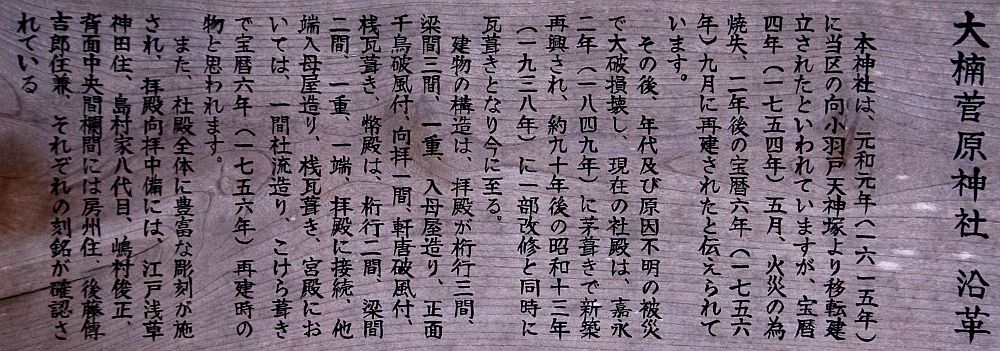 大楠菅原神社　沿革
　本神社は、元和元年（一六一五年）
に当区の向小羽戸天神塚より移転建
立されたといわれていますが、宝暦
四年（一七五四年）五月、火災の為
焼失、二年後の宝暦六年（一七五六
年）九月に再建されたと伝えられて
います。
　その後、年代及び原因不明の被災
で大破損壊し、現在の社殿は、嘉永
二年（一八四九年）に茅葺きで新築
再興され、約九十年後の昭和十三年
（一九三八年）に一部改修と同時に
瓦葺きとなり今に至る。
　建物の構造は、拝殿が桁行三間、
梁間三間、一重、入母屋造り、正面
千鳥破風付、向拝一間、軒唐破風付、
桟瓦葺き、幣殿は、桁行二間、梁間
二間、一重、一端、拝殿に接続、他
端入母屋造り、桟瓦葺き、宮殿にお
いては、一間社流造り、こけら葺き
で宝暦六年（一七五六年）再建時の
物と思われます。
　また、社殿全体に豊富な彫刻が施
され、拝殿向拝中備には、江戸浅草
神田住、島村家八代目、嶋村俊正、
背面中央間欄間には房州住、後藤傳
吉郎住兼、それぞれの刻銘が確認さ
れている